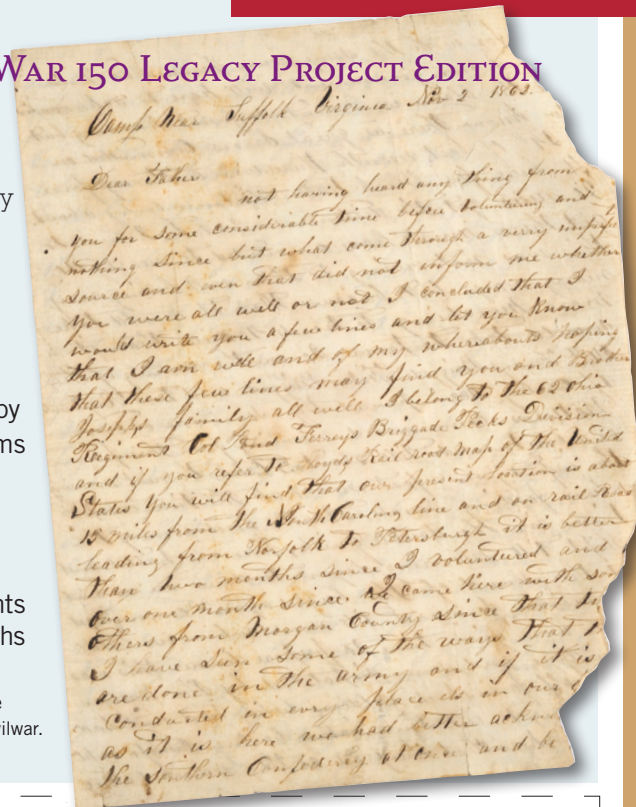 War 150 Legacy Project Edition
Camp Near Suffolk Virginia Nov 2 1862
Dear Father
not having heard any thing from
you for some considerable time before volunteering and
nothing since but what come through a verry
source and even that did not inform me whether
you were all well or not I concluded that I
would write you a few lines and let you Know
that I am well and of my whereabouts hoping
that these few lines may find you and Brother
Josephs family all well I belong to the 62 Ohio
Regiment Col Pond Ferreys Briggade Pecks Division
and if you refer to Loyds Rail road Map of the United
States you will find that our present location is about
15 miles from the North Carolina line and on rail Road
leading from Norfolk to Petersburgh it is better
than two months since I volunteered and
over one month since I came here with
others from Morgan County since that
I have seen some of the ways that
are done in the army and if it is
conducted in every place as in our
as it is here we had better
the Southern Confederacy at once and be
y
oy
ms
nts
hs
e
vilwar.